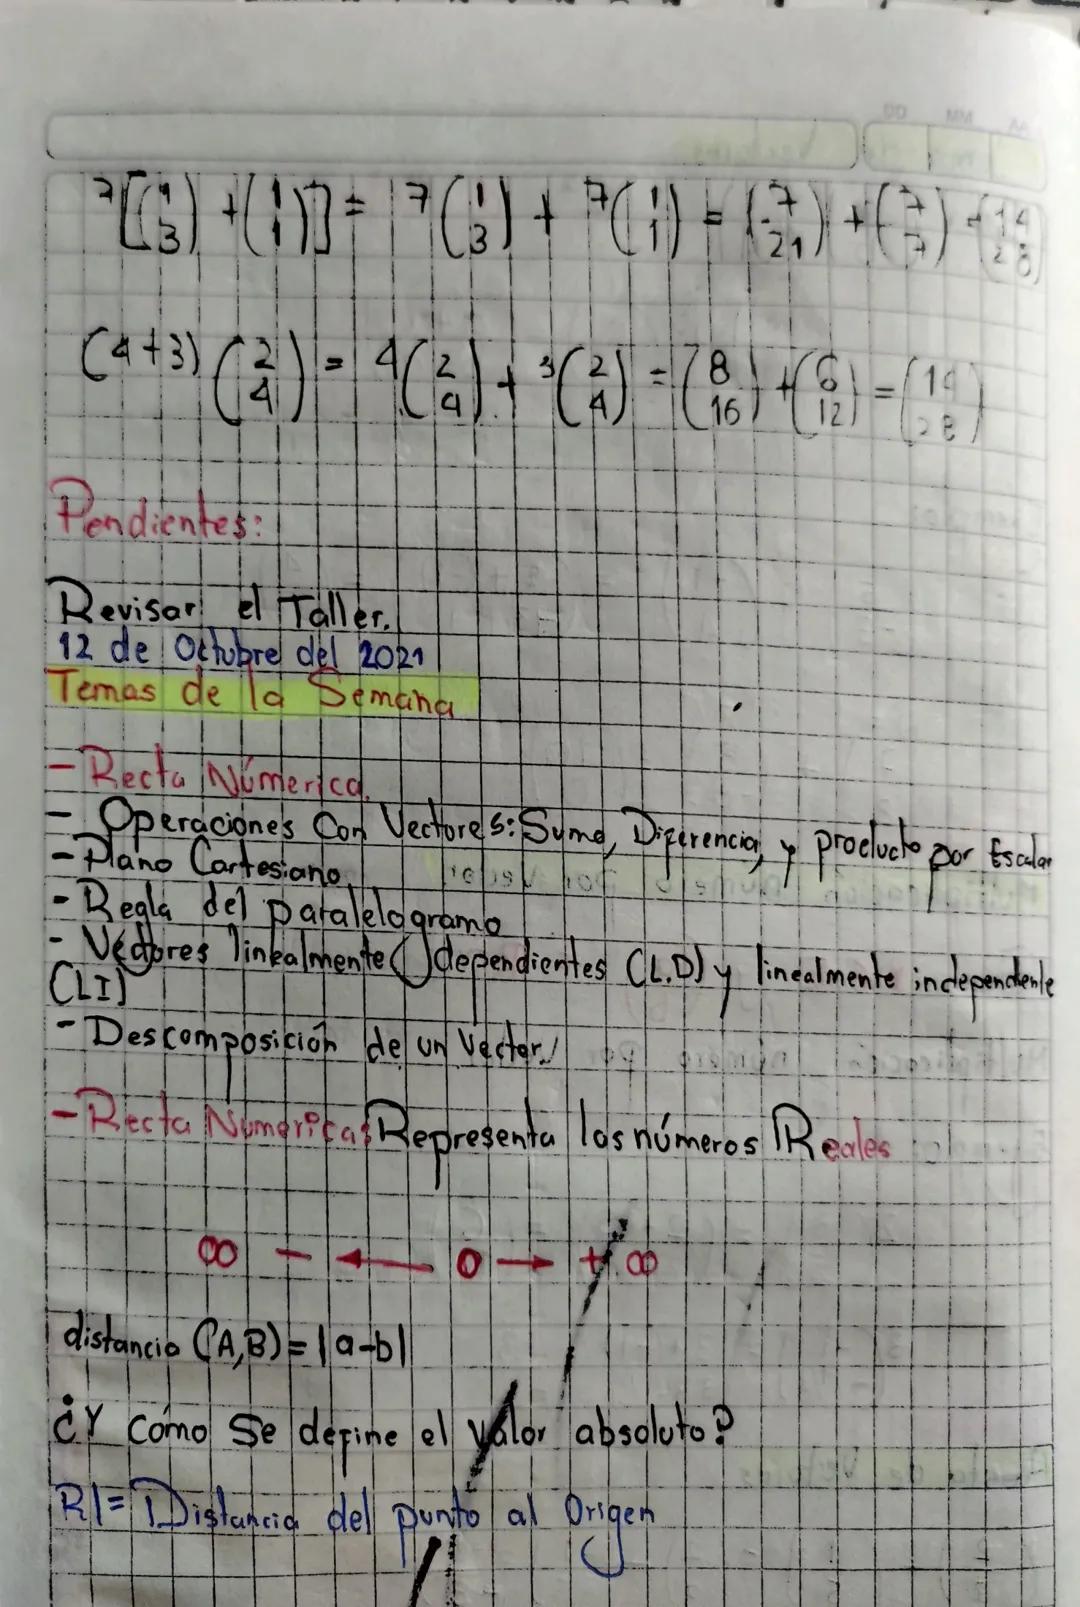 DD MM AA
7[(1 3) + (1 1)] = 7(1 3) + 7(1 1) = (7 21) + (7 7) = (14 28)
(4+3) (2 4) = 4(2 4) + 3(2 4) = (8 16) + (6 12) = (14 28)
Pendientes:
Revisar el Taller.
12 de Octubre del 2021
Temas de la Semana
- Recta Númerica.
- Operaciones Con Vectores: Suma, Diferencia, y producto por Escalar
- Plano Cartesiano
- Regla del paralelogramo
- Vectores linealmente dependientes (L.D) y linealmente independiente
(LI)
- Descomposición de un Vector
- Recta Númerica: Representa los números Reales
∞ - ← 0 → + ∞
distancia (A,B) = |a-b|
¿Y cómo Se define el valor absoluto?
R/= Distancia del punto al Origen